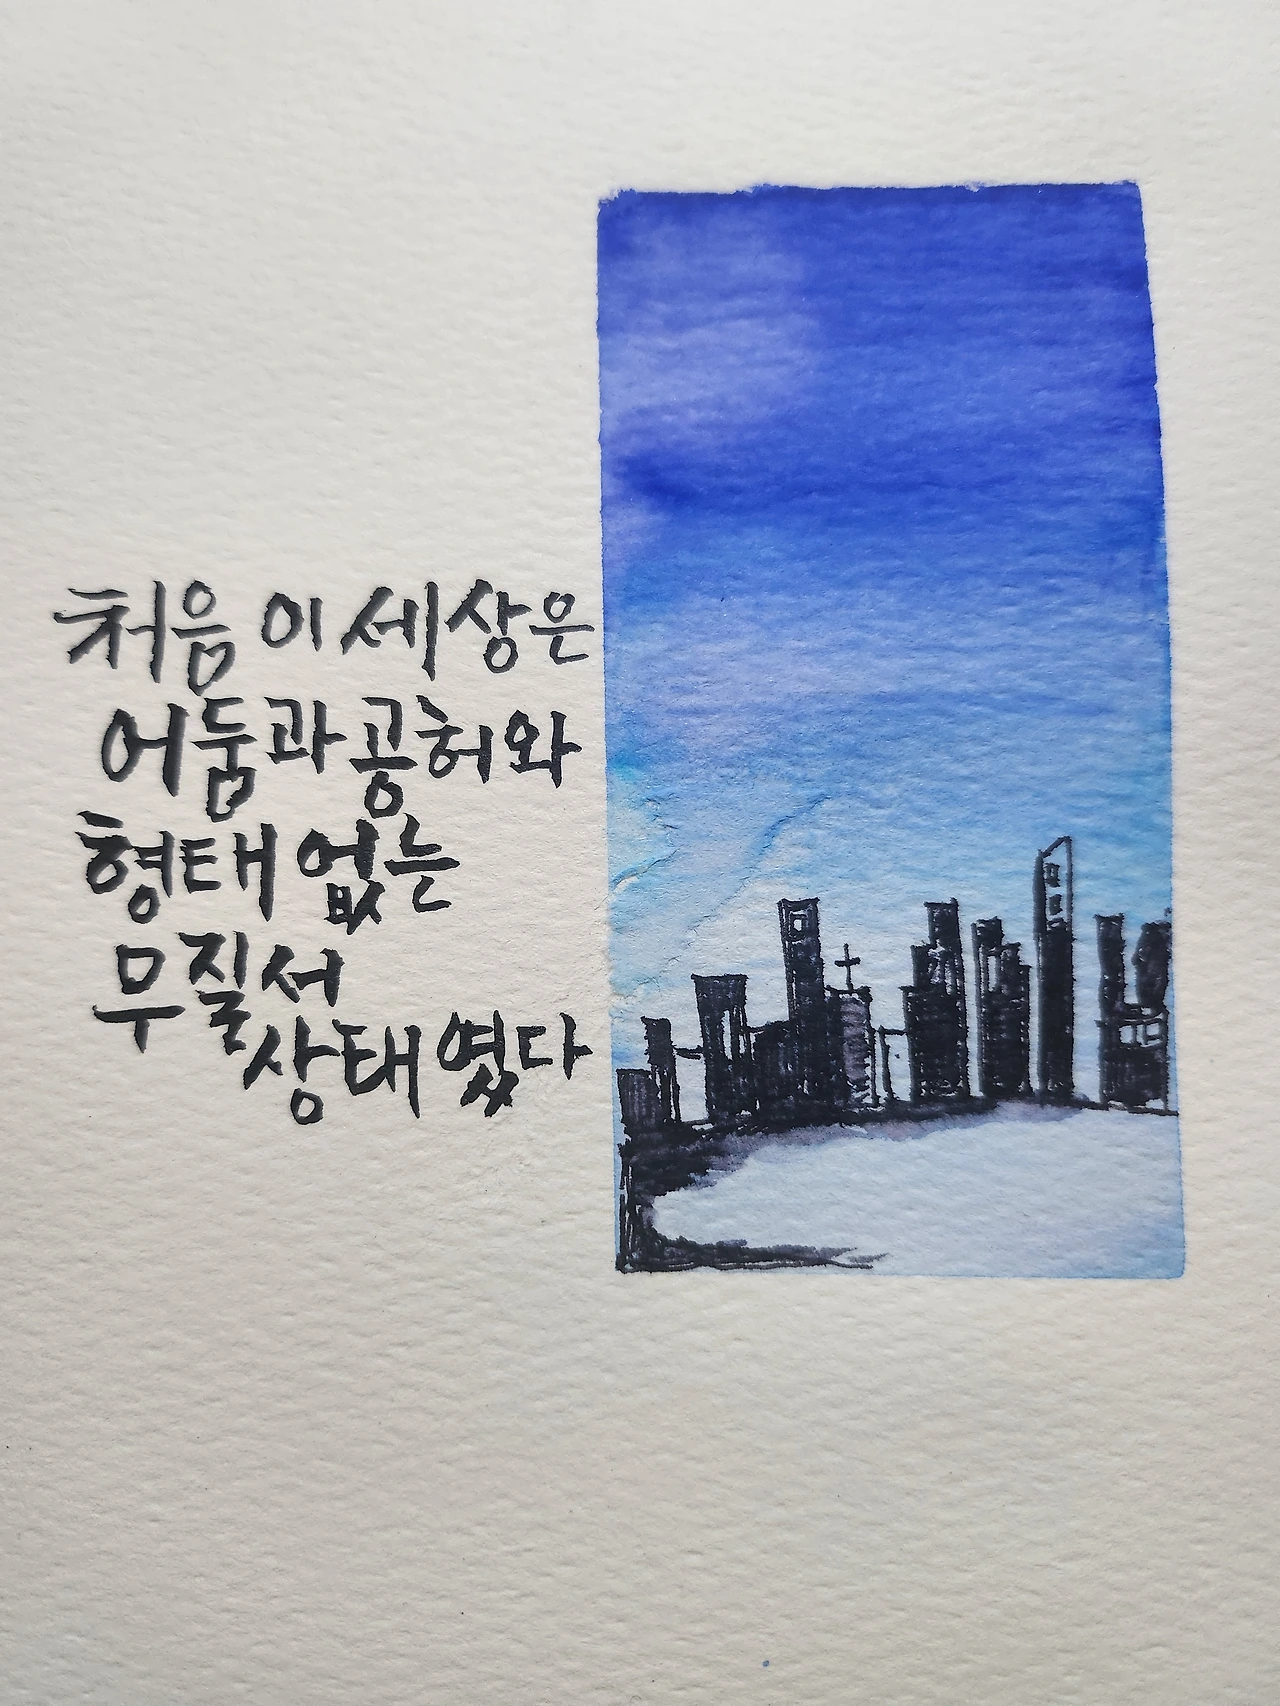 처음 이 세상은
어둠과 공허와
형태 없는
무질서
상태 였다